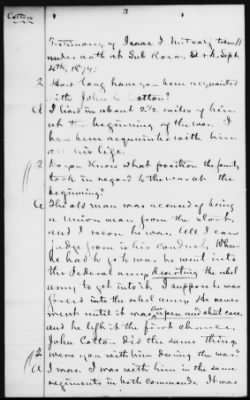 Cotton
3
Testimony of Isaac J.
under oath at Sub Rosa. Sept
4th, 1879.
Q How long have you been acquainted
with John Cotton?
A I lived in about 2½ miles of him
at the beginning of the war. I
have been acquainted with him
all his life.
Q Do you know what position the family
took in regard to the war at the
beginning?
A The old man was accused of being
a Union man from the start
and I recon he was. All I can
judge from is his conduct. When
he had to go to war he went into
the Federal army deserting the rebel
army to get into it. I suppose he was
forced into the rebel army. He never
went until it was an open and shut case,
and he left it the first chance.
John Cotton did the same thing.
Q Were you with him during the war?
A I was. I was with him in the same
regiments in both commands. It was